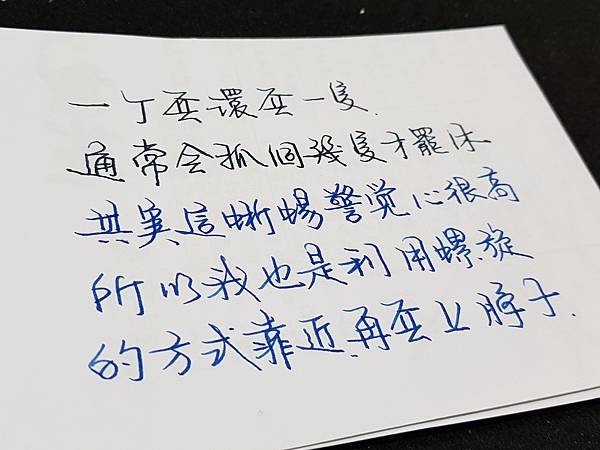 一丁還一隻.
通常会抓個幾隻才罷休
其實這蜥蜴警覚心很高
所以我也是利用螺旋
的方式靠近.再上脖子.